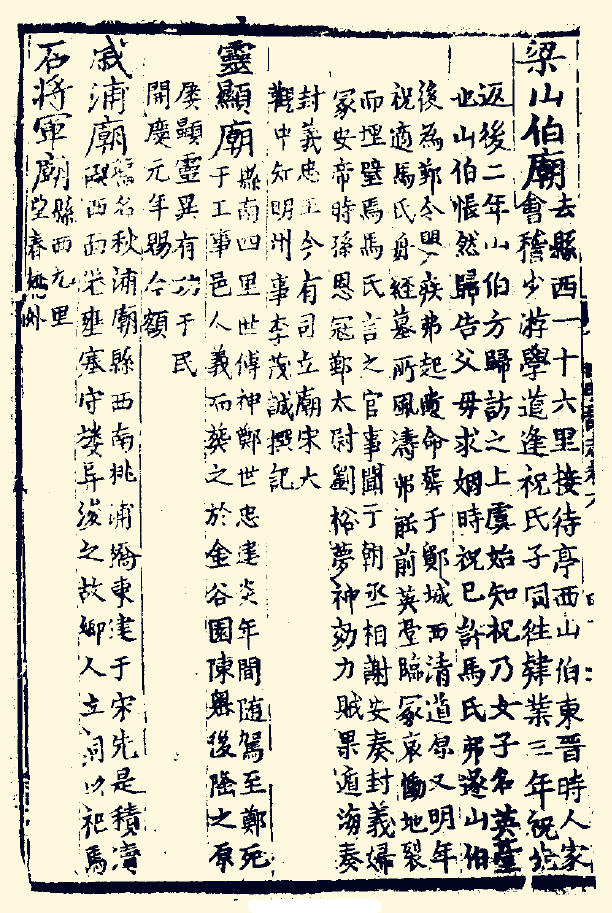 梁山伯廟去縣西一十六里接待亭西山伯東晉時人家
會稽少游學道逢祝氏子同往肄業三年祝先
返後二年山伯方歸訪之上虞始知祝乃女子名英臺
也山伯悵然歸告父母求姻時祝已許馬氏弗遂山伯
後為鄞令嬰疾弗起遺命葬于鄮城西清道原又明年
祝適馬氏舟經墓所風濤弗能前英臺臨冢哀慟地裂
而埋璧焉馬氏言之官事聞于朝丞相謝安奏封義婦
冢安帝時孫恩寇鄞太尉劉裕夢神効力賊果遁海奏
封義忠王今有司立廟宋大
觀中知明州事李茂誠撰記
靈顯廟縣南四里世傳神鄭世忠建炎年間随駕至鄭死
于工事邑人義而葬之於金谷園陳後隆之原
屡顯靈異有功于民
開慶元年賜今額
戚浦廟舊名秋浦廟縣西南桃浦橋東建于宋先是積瀆
西面岸壅塞守浚之故鄉人立祠以祀焉
石将軍廟縣西九里
望春橋外